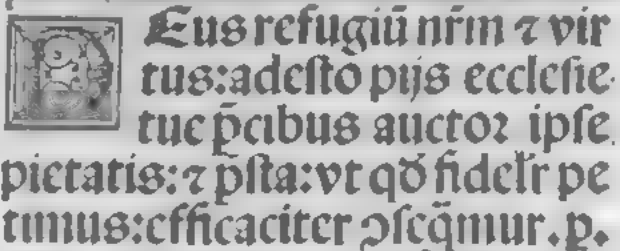 DEus refugiū nr̄m ⁊ vir
tus: adesto pijs ecclesie
tue p̄cibus auctoꝛ ipse
pietatis: ⁊ p̄sta: vt qđ fidelr̄ pe
timus: efficaciter ↄseq̄mur. p.